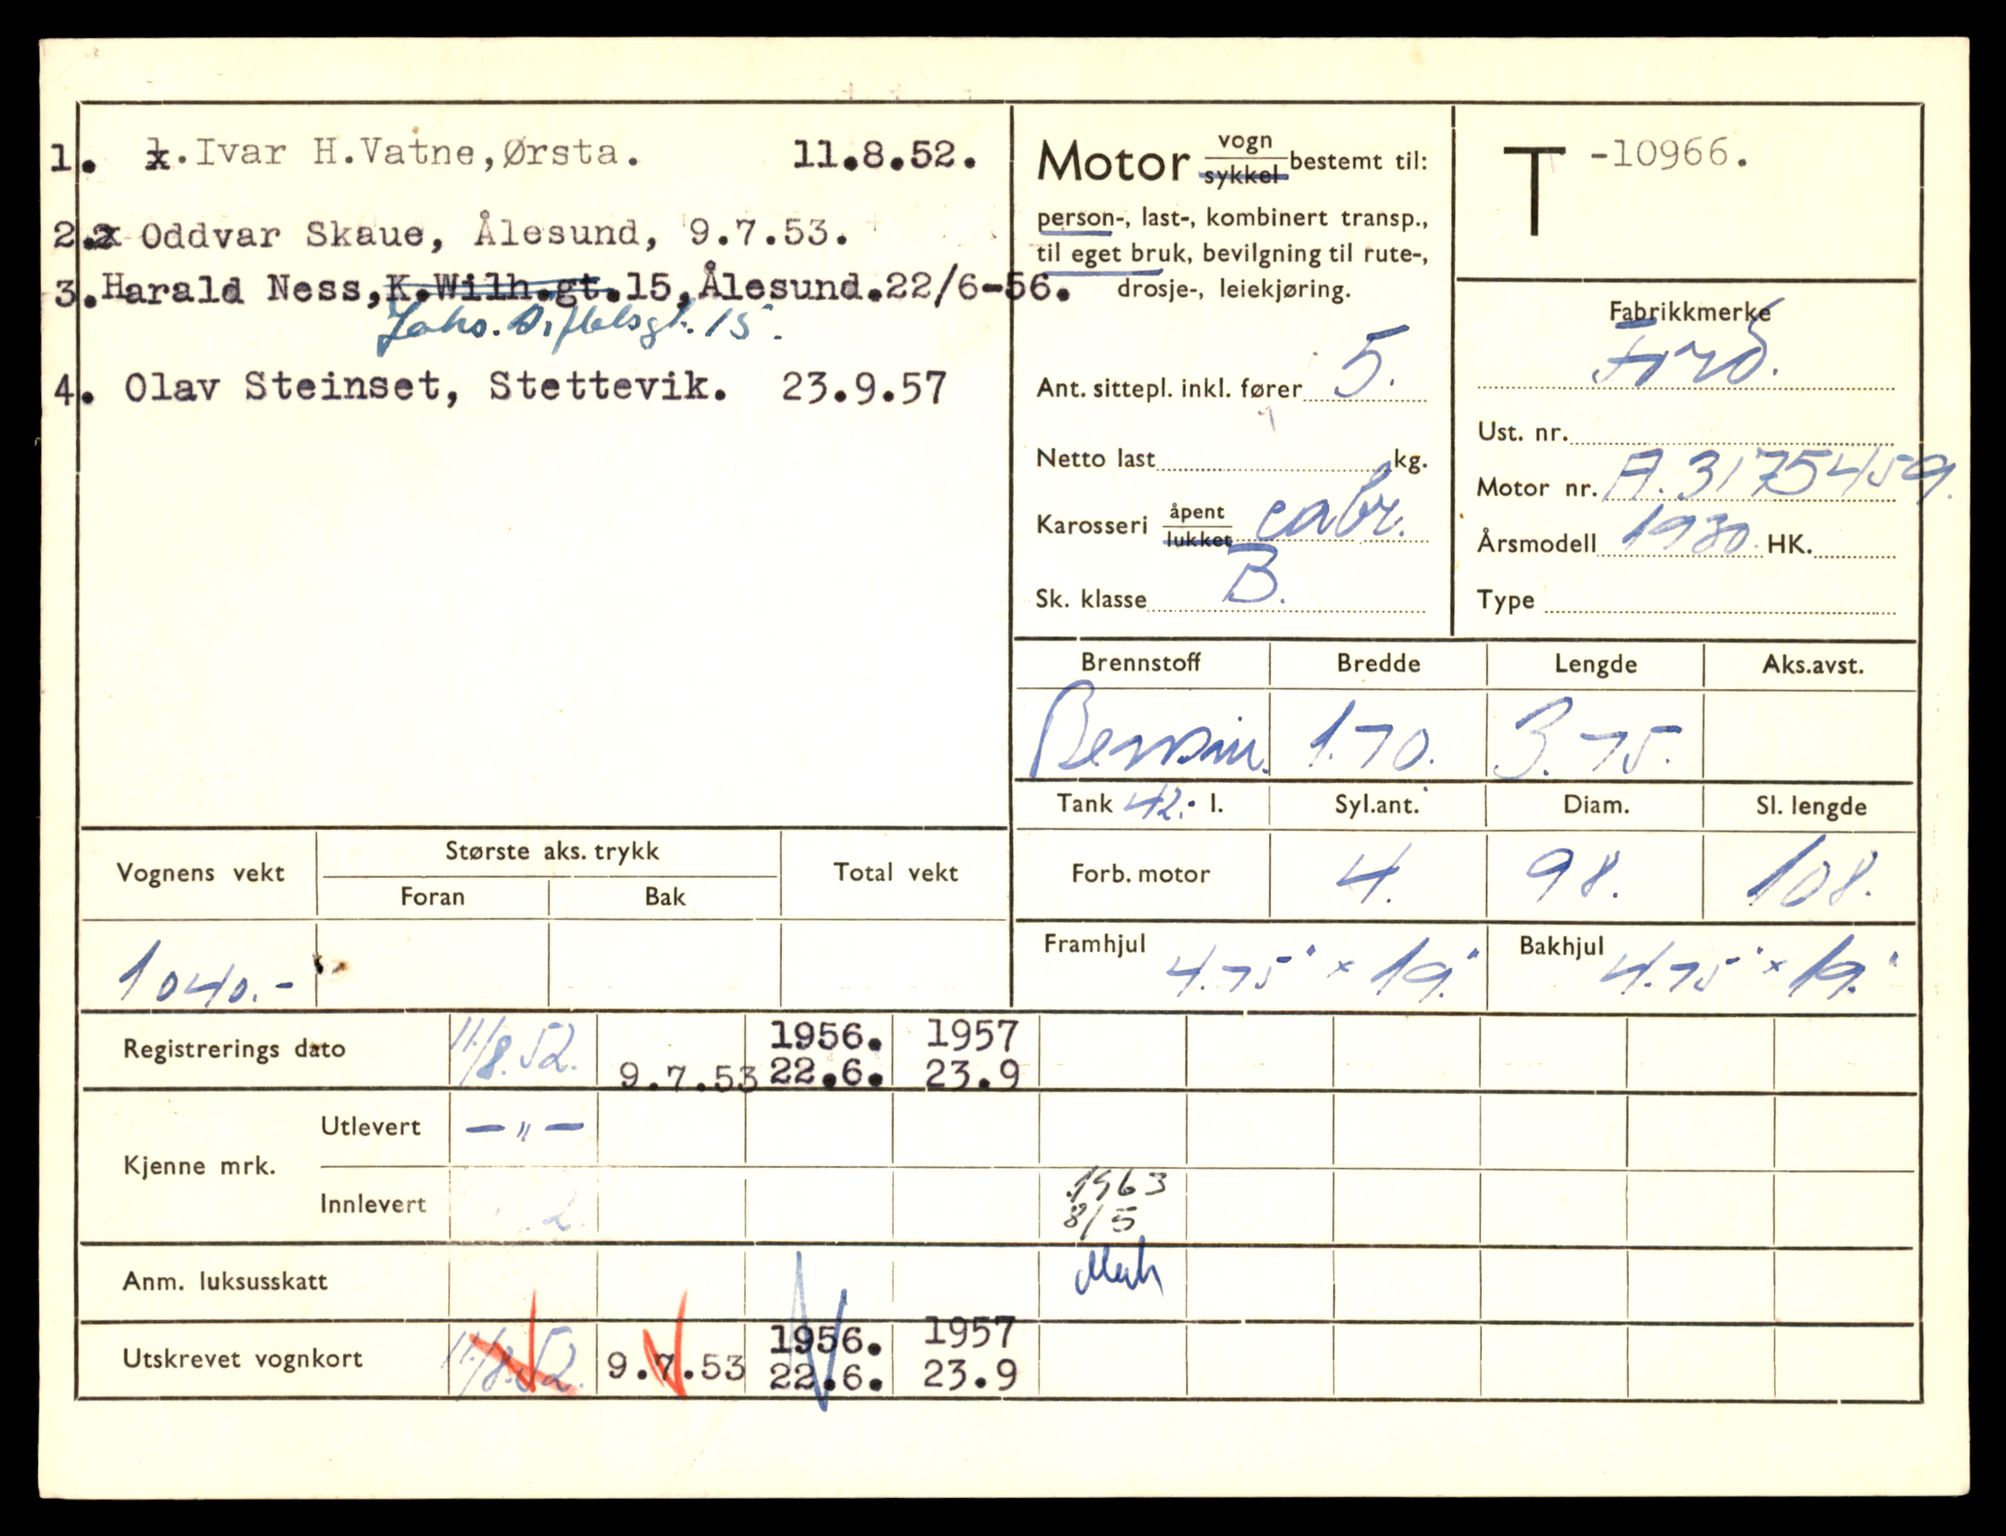 1. 1. Ivar H.Vatne, Ørsta. 11.8.52.
2. Oddvar Skaue, Ålesund, 9.7.53.
3. Harald Ness, K.Wilh.gt. 15, Ålesund. 22/6-56.
15.
4. Olav Steinset, Stettevik. 23.9.57
Motor vogn sykkel bestemt til:
person-, last-, kombinert transp.,
til eget bruk, bevilgning til rute-,
drosje-, leiekjøring.
Ant. sittepl. inkl. fører 5.
Netto last kg.
Karosseri åpent lukket cabr.
Sk. klasse B.
T -10966.
Fabrikkmerke
Ford.
Ust. nr.
Motor nr. A.3175459.
Årsmodell 1930. HK.
Type
Brennstoff Bredde Lengde Aks.avst.
Bensin. 1.70. 3.75.
Tank 42. l. Syl.ant. Diam. Sl. lengde
Forb. motor 4. 98. 108.
Framhjul 4.75" x 19." Bakhjul 4.75" x 19."
Vognens vekt Største aks. trykk Total vekt
Foran Bak
1040.-
Registrerings dato 11/8.52. 9.7.53 1956. 22.6. 1957 23.9
Kjenne mrk. Utlevert — " —
Innlevert 2. 1963 8/5
Anm. luksusskatt
Utskrevet vognkort 11/8.52. 9.7.53 1956. 22.6. 1957 23.9